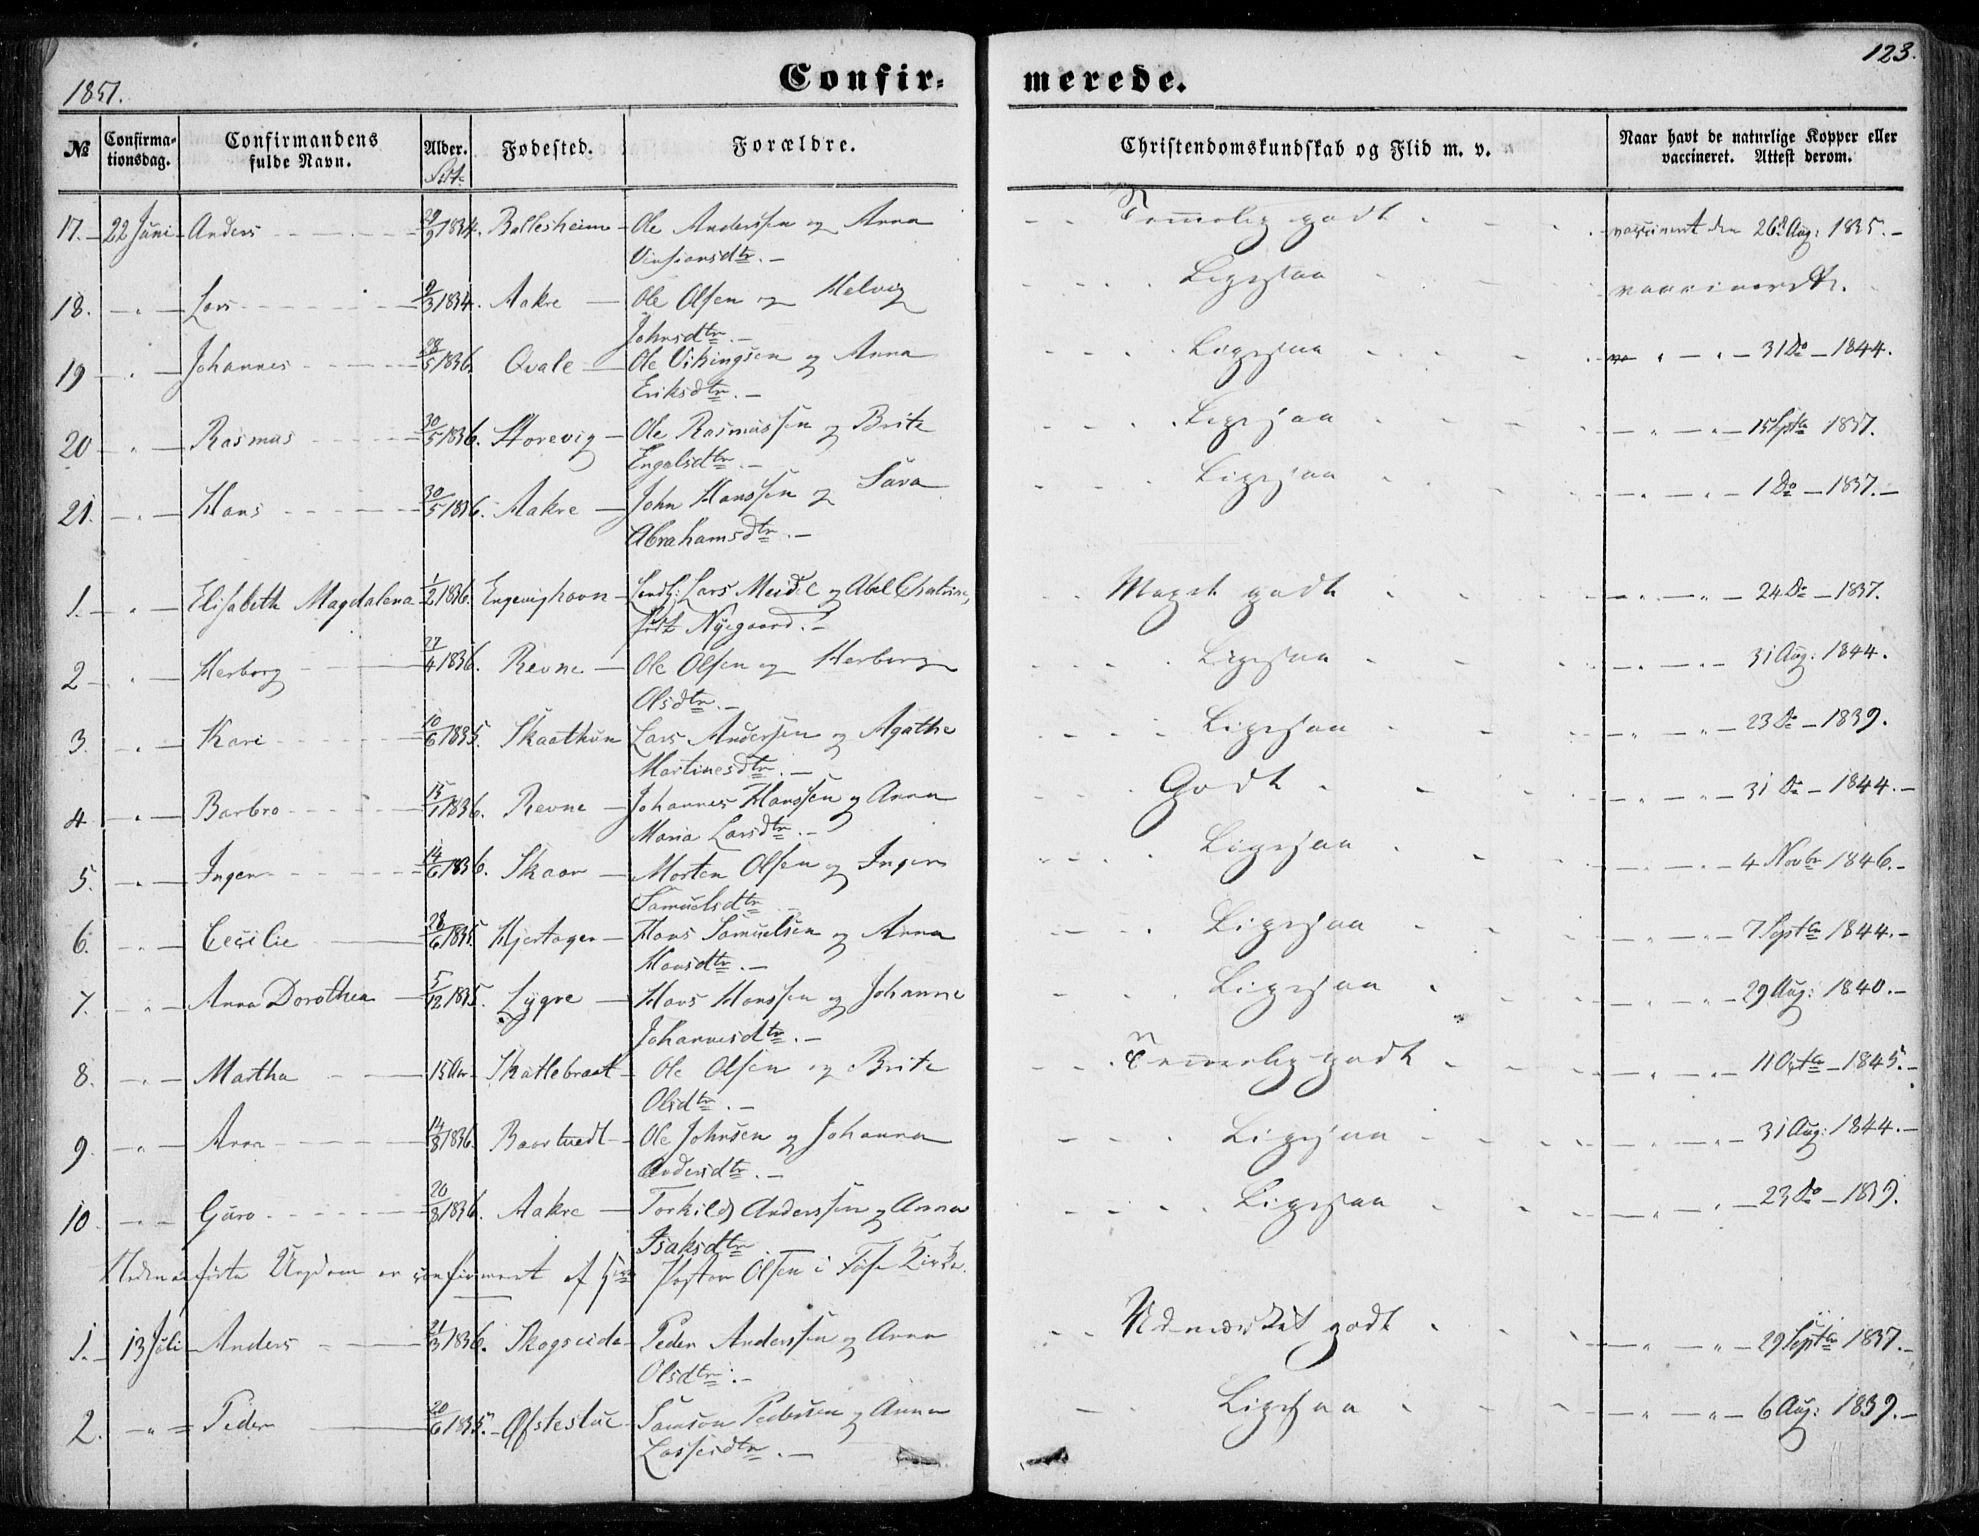 1851.
Confir-
merede.
123.
№ Confirma-tionsdag. Confirmandens fulde Navn. Alder. Fødested. Forældre. Christendomskundskab og Flid m. v. Naar havt de naturlige Kopper eller vaccineret. Attest derom.
17. 22 Juni Anders 29/9 1834. Ballesheim Ole Anderssen og Anna Temmelig godt vaccineret den 26d Aug: 1835.
18. " Lars 9/3 1834. Aakre Ole Olsen og Helvig Ligesaa
Johnsdtr.
19 " Johannes 28/5 1836. Qvale Ole Vikingsen og Anna Ligesaa " " 31 Do 1844.
Eriksdtr.
20 " Rasmus 30/5 1836. Storevig Ole Rasmussen og Brite Ligesaa " " 15 Septbr 1837.
Engelsdtr.
21. " Hans 30/5 1836. Aakre John Hanssen og Sara Ligesaa " " 1 Do 1837.
Abrahamsdtr.
1. " Elisabeth Magdalena 1/2 1836. Engevighavn Lars Meidel og Abel Chatrine, Meget godt " " 24 Do 1837.
født Nyegaard.
2 " Herborg 27/4 1836. Revne Ole Olsen og Herborg Ligesaa " " 31 Aug: 1844.
Olsdtr.
3. " Kari 10/6 1835. Skaathun Lars Andersen og Agathe Ligesaa " " 23 Do 1839.
Martinesdtr.
4 " Barbro 1836. Revne Johannes Hanssen og Anna Godt " " 31 Do 1844.
Maria Larsdtr.
5. " Inger 14/6 1836. Skaar Morten Olsen og Inger Ligesaa " " 4 Novbr 1846.
Samuelsdtr
6. " Cecilie 28/6 1835. Hjertager Hans Samuelsen og Anna Ligesaa " " 7 Septbr 1844.
Hansdtr.
7. " Anna Dorothea 5/12 1835. Lygre Hans Hanssen og Johanne Ligesaa " " 29 Aug: 1840.
Johannesdtr.
8. " Martha 15 Aar Skatlebraat Ole Olsen og Brite Temmelig godt " " 11 Octbr 1845.
Olsdtr.
9. " Anna 14/8 1836. Baartvedt Ole Johnsen og Johanna Ligesaa " " 31 Aug: 1844.
Andersdtr.
10. " Guro 20/8 1836. Aakre Torkild Anderssen og Anna Ligesaa " " 23 Do 1839.
Isaksdtr
Nedenanførte Ungdom er confirmeret af Hr. Pastor Olsen i Fuse Kirke.
1. 13 Juli Anders 21/3 1836. Skogseide Peder Anderssen og Anna Udmærket godt " " 29 Septbr 1837.
Olsdtr.
2. " Peder 20/6 1835. Øfstestue Samson Pedersen og Anna Ligesaa " " 6 Aug: 1839.
Lassesdtr.